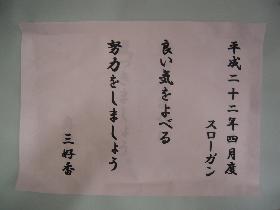 平成二十二年四月度
スローガン
良い気をよべる
努力をしましょう
三好香